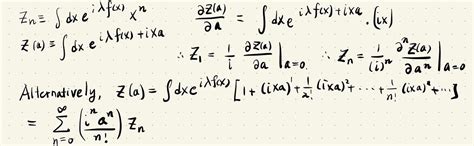 Zₙ ≡ ∫dx e^{iλf(x)} xⁿ
Z(a) ≡ ∫dx e^{iλf(x)+ixa}
∂Z(a)/∂a = ∫dx e^{iλf(x)+ixa} · (ix)
∴ Z₁ = 1/i ∂Z(a)/∂a |_{a=0} ∴ Zₙ = 1/(i)ⁿ ∂ⁿZ(a)/∂aⁿ |_{a=0}
Alternatively, Z(a) = ∫dx e^{iλf(x)} [1 + (ixa)¹ + 1/2! (ixa)² + ··· + 1/n! (ixa)ⁿ + ···]
= ∑_{n=0}^{∞} (iⁿaⁿ/n!) Zₙ